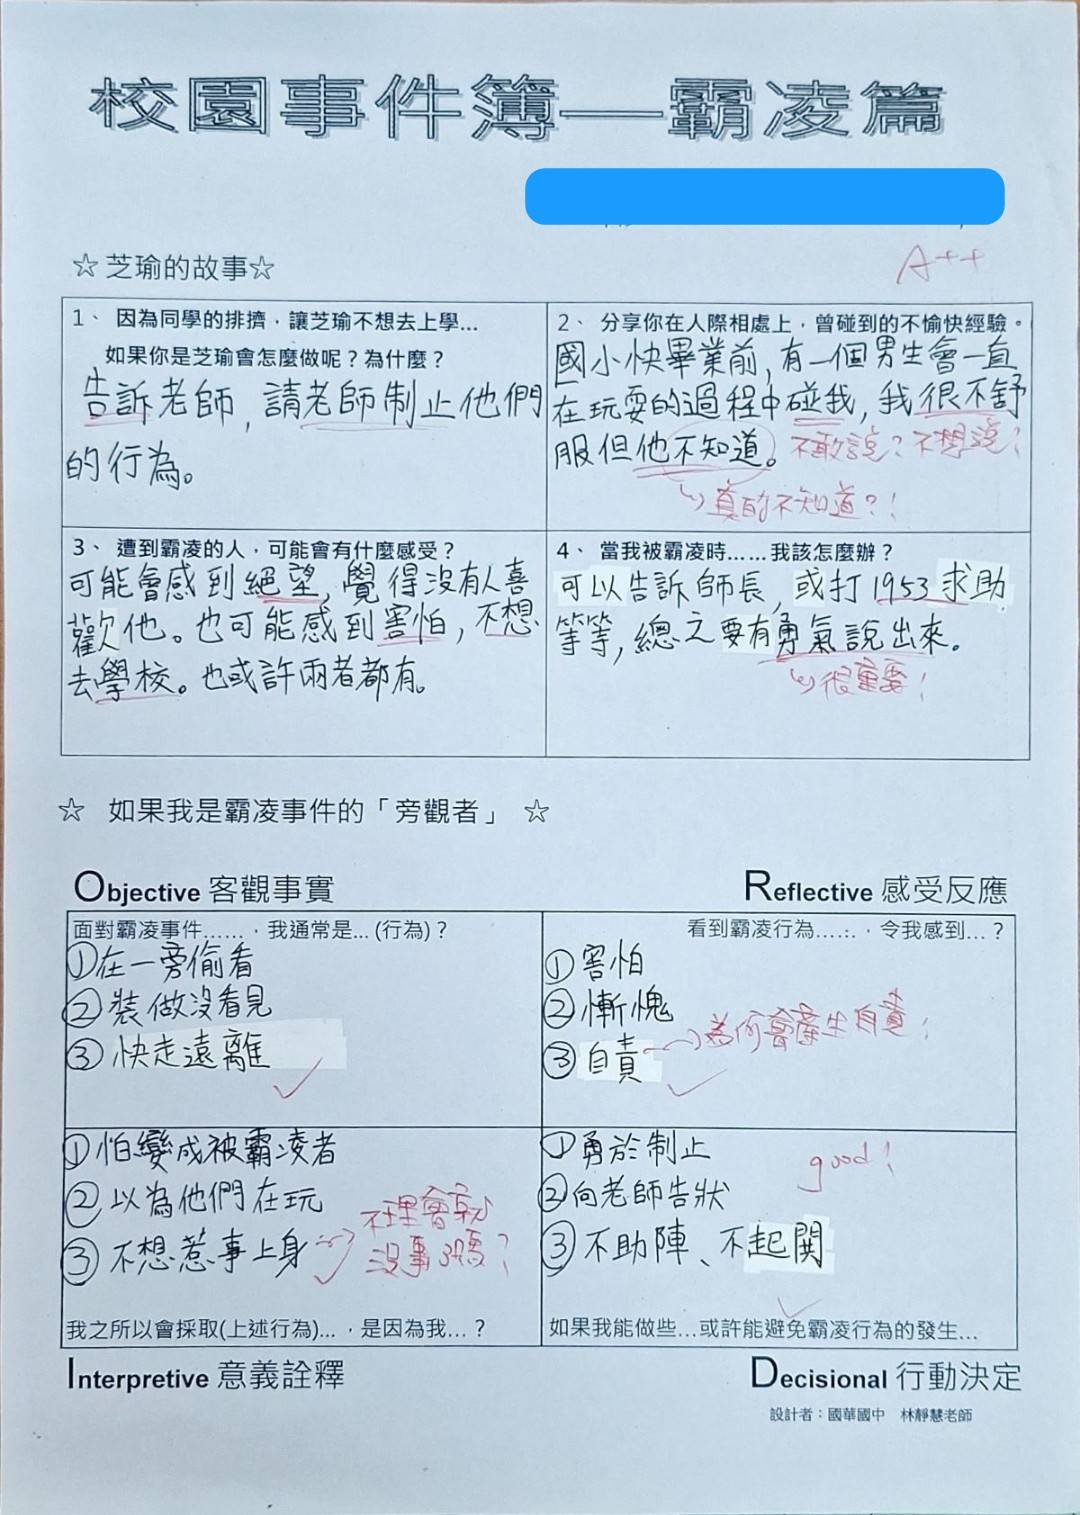 校園事件簿—霸凌篇
A++
☆芝瑜的故事☆
1、 因為同學的排擠，讓芝瑜不想去上學...
如果你是芝瑜會怎麼做呢？為什麼？
告訴老師，請老師制止他們
的行為。
2、 分享你在人際相處上，曾碰到的不愉快經驗。
國小快畢業前，有一個男生會一直
在玩耍的過程中碰我，我很不舒
服但他不知道。不敢說？不想說？
真的不知道？！
3、 遭到霸凌的人，可能會有什麼感受？
可能會感到絕望，覺得沒有人喜
歡他。也可能感到害怕，不想
去學校。也或許兩者都有。
4、 當我被霸凌時……我該怎麼辦？
可以告訴師長，或打1953求助
等等，總之要有勇氣說出來。
很重要！
☆ 如果我是霸凌事件的「旁觀者」 ☆
Objective 客觀事實
面對霸凌事件……，我通常是...(行為)？
①在一旁偷看
②裝做沒看見
③快走遠離
Reflective 感受反應
看到霸凌行為….:.，令我感到...？
①害怕
②慚愧
③自責 為何會產生自責！
①怕變成被霸凌者
②以為他們在玩
③不想惹事上身
不理會就
沒事了嗎？
我之所以會採取(上述行為)...，是因為我...？
Interpretive 意義詮釋
①勇於制止
②向老師告狀
③不助陣、不起鬨
good！
如果我能做些...或許能避免霸凌行為的發生...
Decisional 行動決定
設計者：國華國中 林靜慧老師